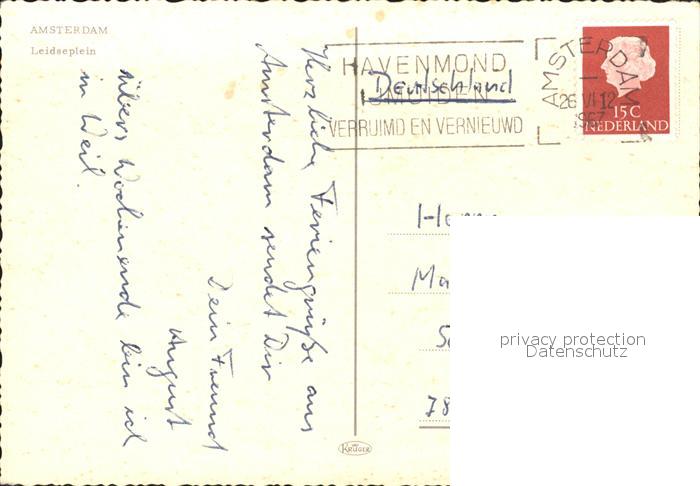 AMSTERDAM
Leidseplein
Herzliche Feriengrüße aus
Amsterdam sendet Dir
Dein Freund
August
übers Wochenende bin ich
in Weil.
HAVENMOND
IJMUIDEN
VERRUIMD EN VERNIEUWD
Deutschland
AMSTERDAM
26 VI 12
1967
15 C
NEDERLAND
78
KRÜGER
privacy protection
Datenschutz